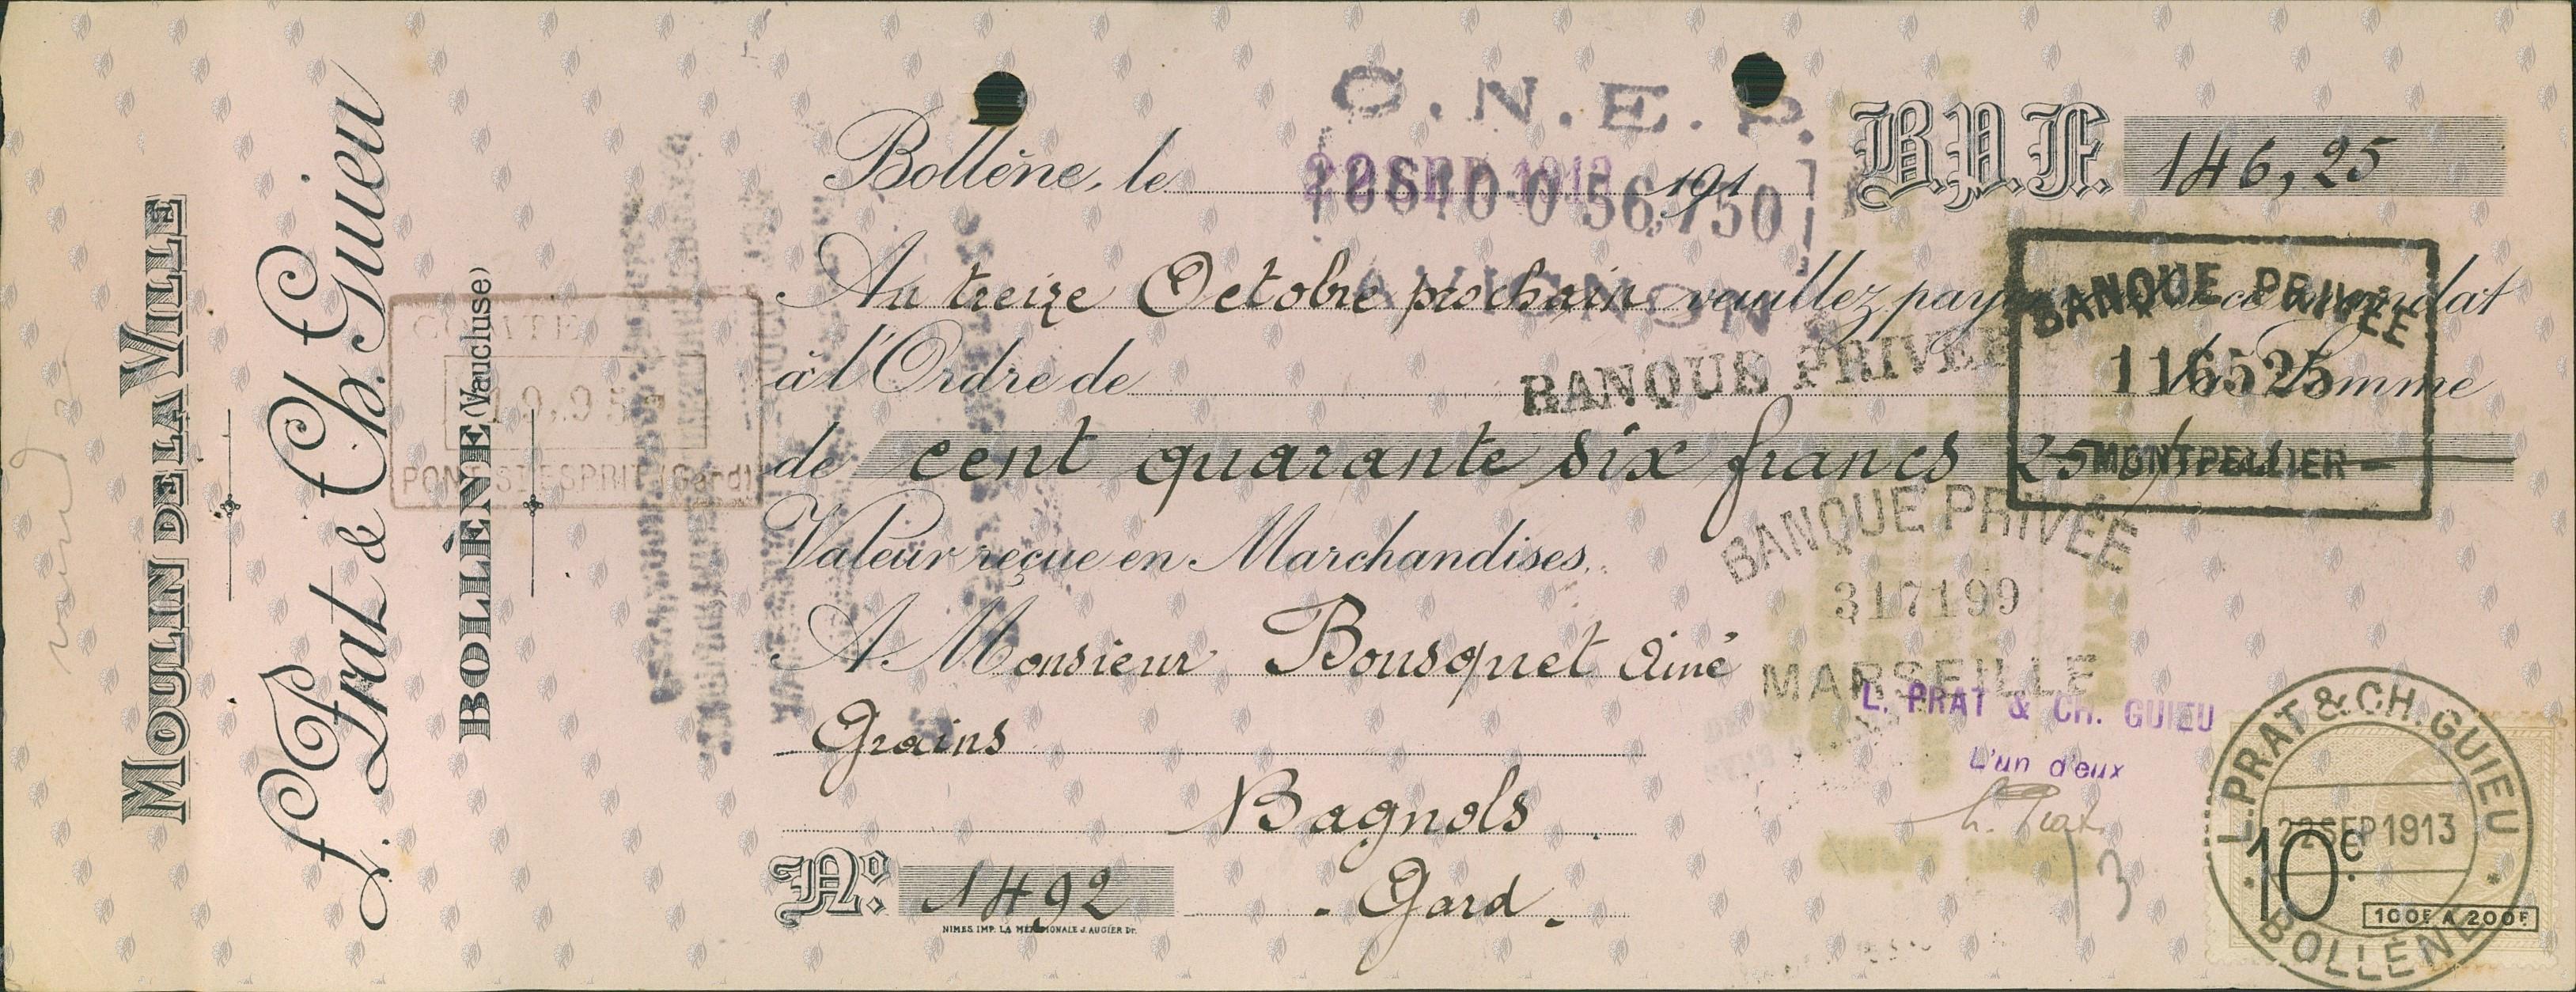 MOULIN DE LA VILLE
L. Prat & Ch. Guieu
BOLLÈNE (Vaucluse)
C.N.E.P.
Bollène, le 22 SEP 1913 191
B.P.F. 146,25
AVIGNON
Au treize Octobre prochain veuillez payer ce mandat
à l'Ordre de la Somme
de cent quarante six francs 25
Valeur reçue en Marchandises.
A Monsieur Bousquet Aîné
Grains
Bagnols
Gard
No. 1492
NIMES. IMP. LA MÉRIDIONALE J. AUGIER Dr.
BANQUE PRIVÉE
116525
MONTPELLIER
BANQUE PRIVÉE
BANQUE PRIVÉE
317199
MARSEILLE
L. PRAT & CH. GUIEU
L'un d'eux
L. Prat
13
L. PRAT & CH. GUIEU
22 SEP 1913
BOLLÈNE
10c.
100F À 200F
PONT ST ESPRIT (Gard)